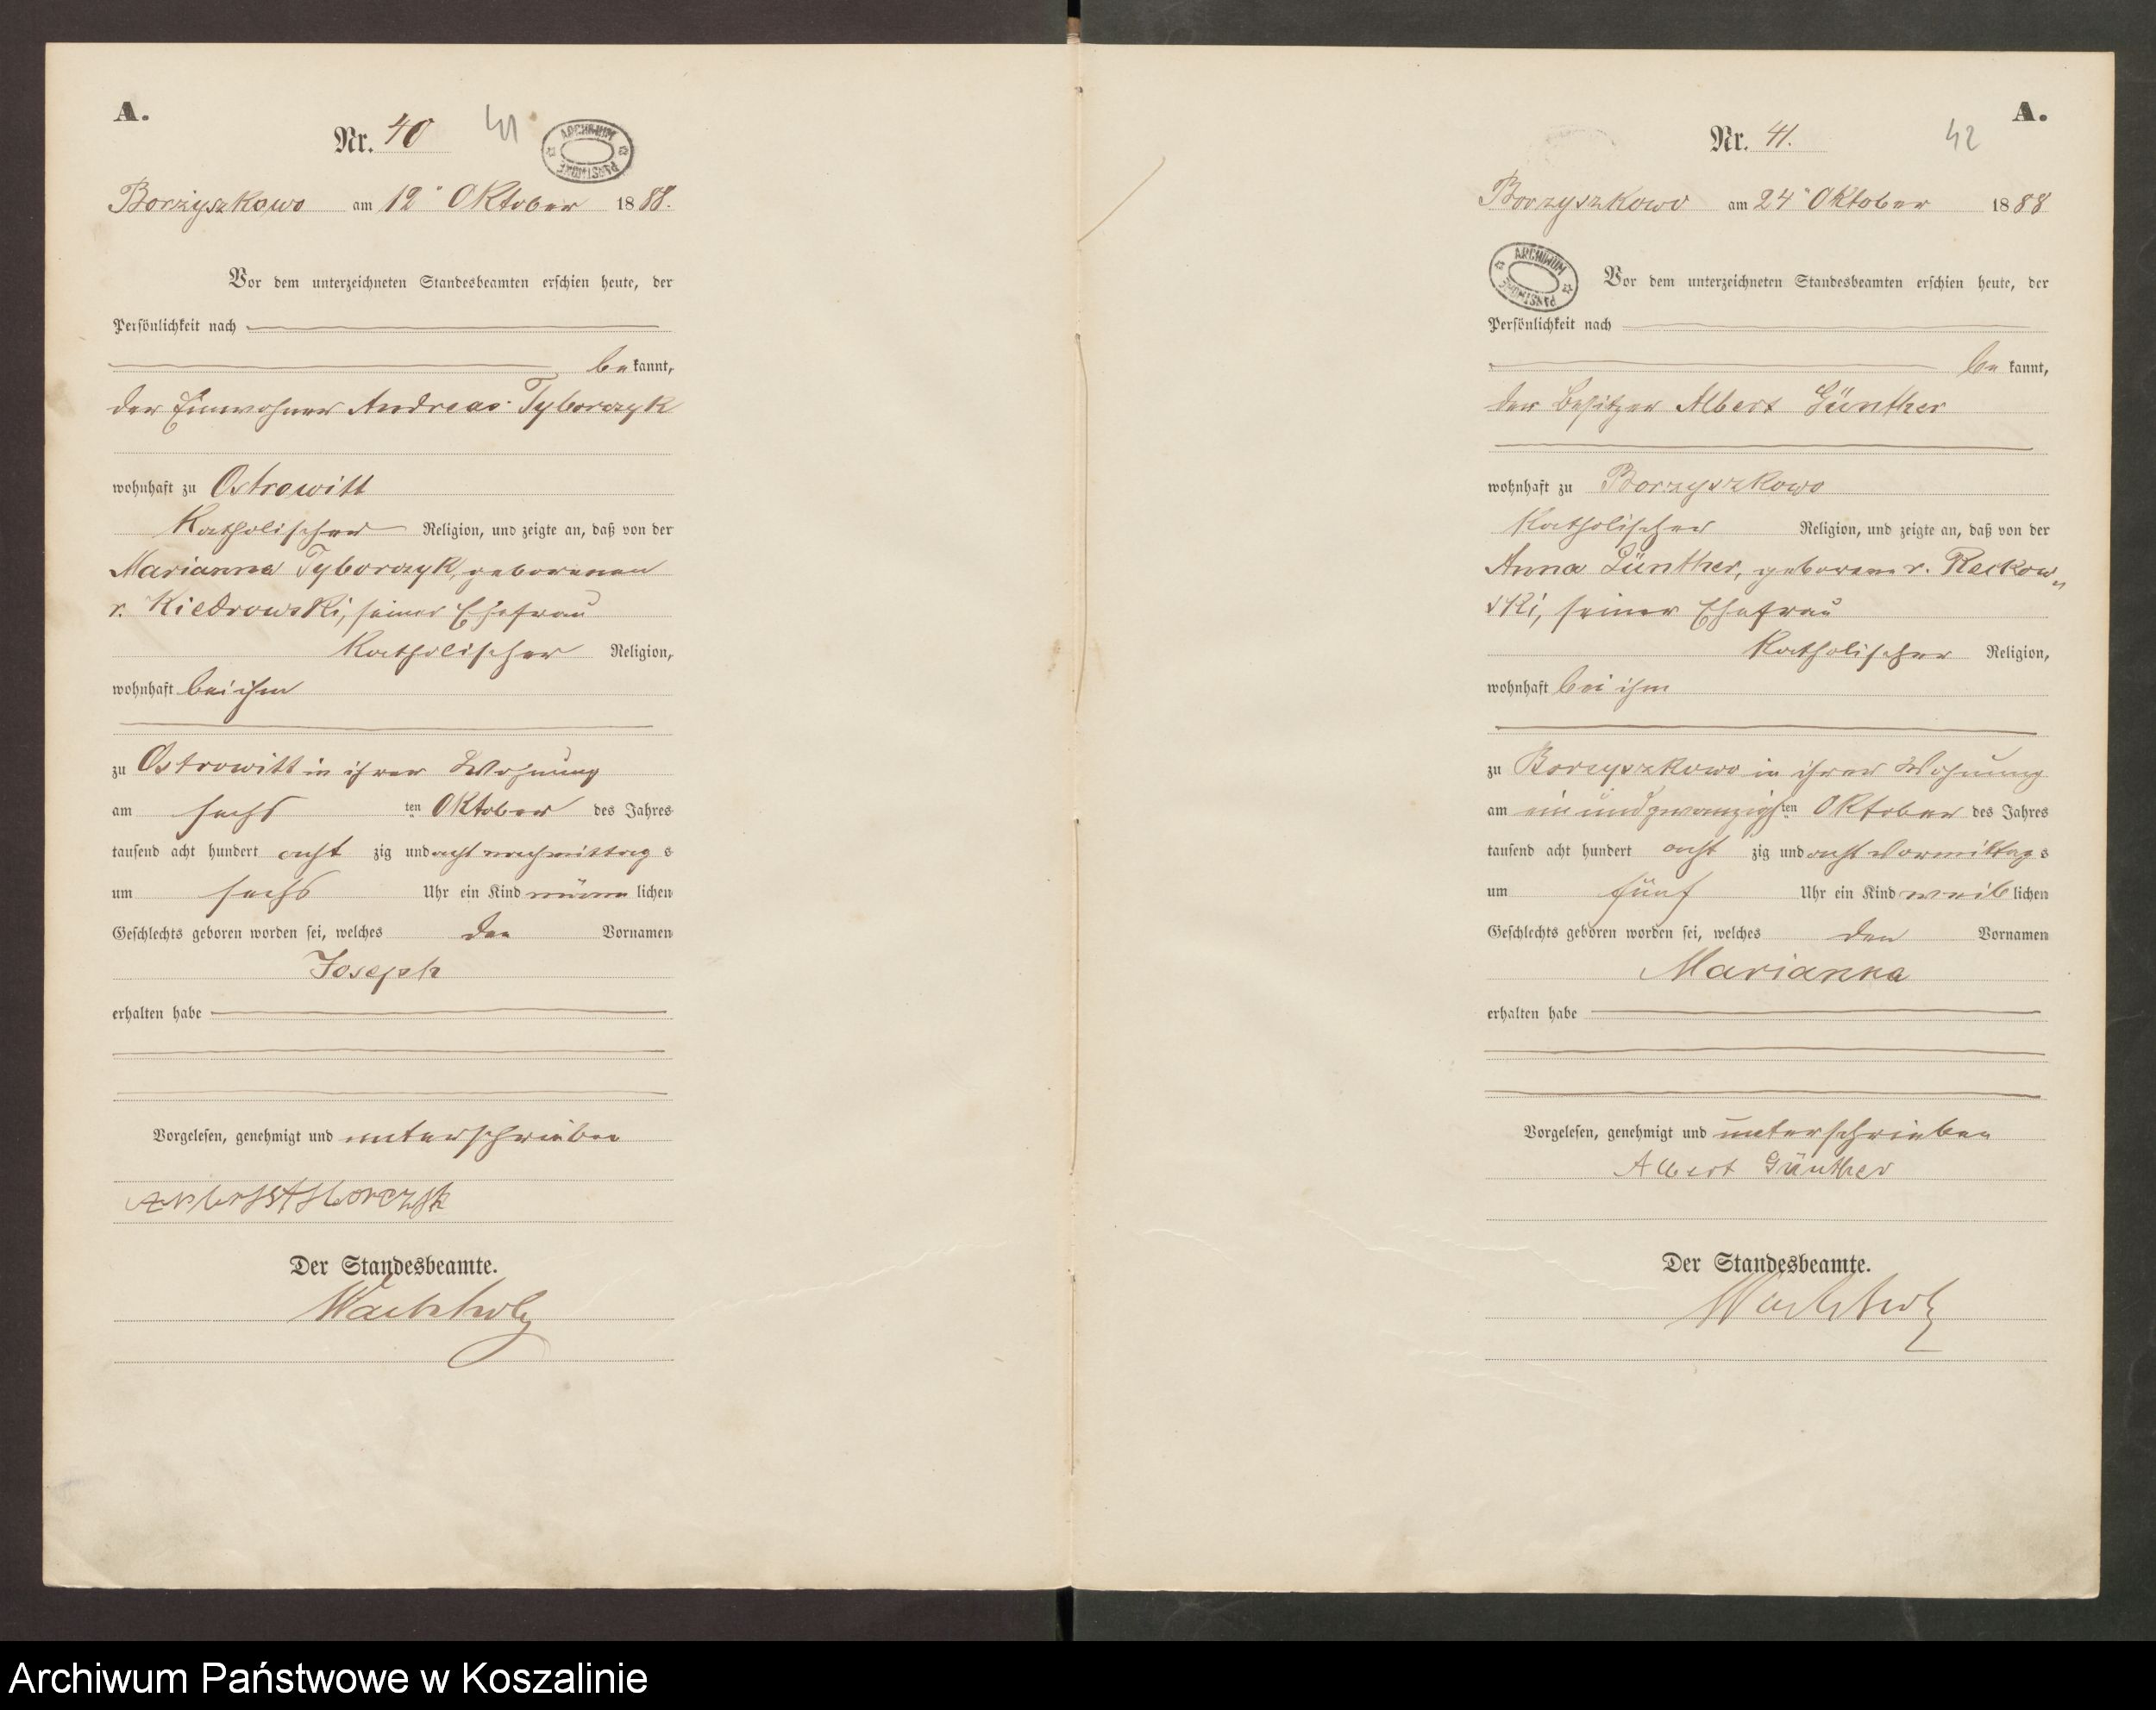 A.
Nr. 40
41
ARCHIWUM PAŃSTWOWE
Borzyszkowo am 12" Oktober 1888.
Vor dem unterzeichneten Standesbeamten erschien heute, der
Persönlichkeit nach
bekannt,
der Einwohner Andreas Tyborczyk
wohnhaft zu Ostrowitt
Katholischer Religion, und zeigte an, daß von der
Marianna Tyborczyk, geborenen
v. Kiedrowski, seiner Ehefrau
Katholischer Religion,
wohnhaft bei ihm
zu Ostrowitt in ihrer Wohnung
am sechsten Oktober des Jahres
tausend acht hundert achtzig und acht nachmittags
um sechs Uhr ein Kind männlichen
Geschlechts geboren worden sei, welches den Vornamen
Joseph
erhalten habe
Vorgelesen, genehmigt und unterschrieben
Der Standesbeamte.
Wachholz
A.
Nr. 41.
42
Borzyszkowo am 24" Oktober 1888
ARCHIWUM PAŃSTWOWE
Vor dem unterzeichneten Standesbeamten erschien heute, der
Persönlichkeit nach
bekannt,
der Besitzer Albert Günther
wohnhaft zu Borzyszkowo
Katholischer Religion, und zeigte an, daß von der
Anna Günther, geborene v. Reckow„
ski, seiner Ehefrau
Katholischer Religion,
wohnhaft bei ihm
zu Borzyszkowo in ihrer Wohnung
am ein und zwanzigsten Oktober des Jahres
tausend acht hundert achtzig und acht Vormittags
um fünf Uhr ein Kind weiblichen
Geschlechts geboren worden sei, welches den Vornamen
Marianna
erhalten habe
Vorgelesen, genehmigt und unterschrieben
Albert Günther
Der Standesbeamte.
Wachholz
Archiwum Państwowe w Koszalinie